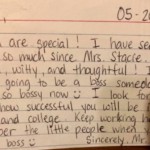 05-20
are special! I have see
so much since Mrs. Stacie
, witty, and thoughtful! I
going to be a boss someda
so bossy now ☺ I look fo
how successful you will be i
and college. Keep working h
the little people when
boss ☺ Sincerely, Mr.